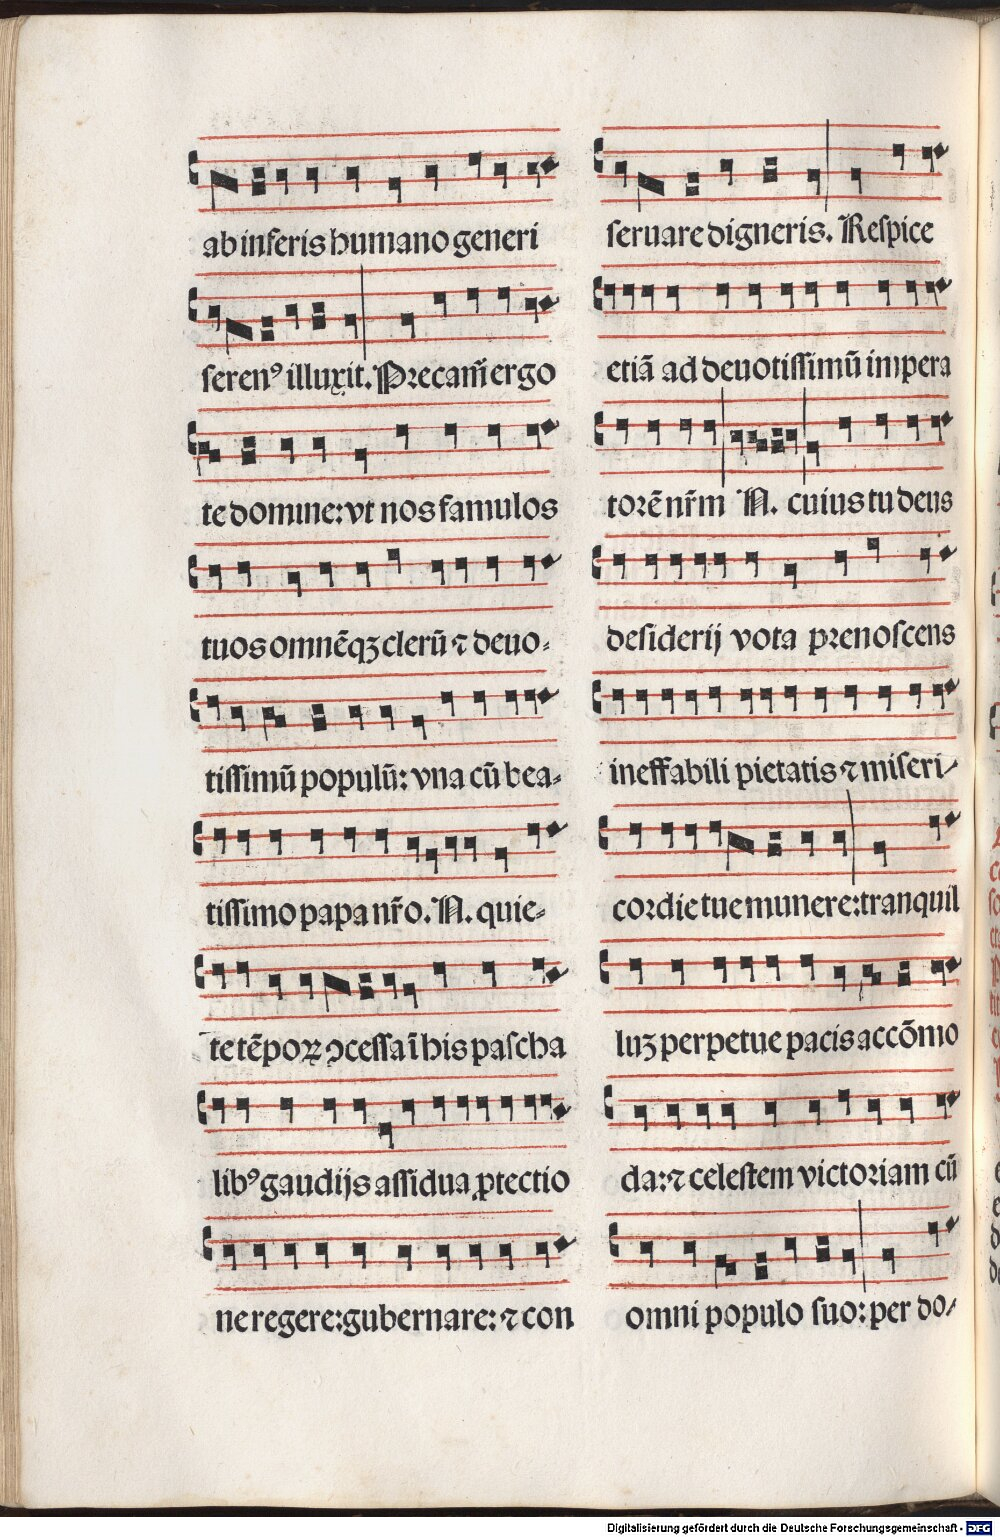 ab inferis humano generi
serenꝰ illuxit. Precam̄ ergo
te domine: vt nos famulos
tuos omnēqꝫ clerū ⁊ deuo-
tissimū populū: vna cū bea-
tissimo papa nr̄o. N. quie-
te tēpoꝝ ↄcessa ī his pascha
libꝰ gaudijs assidua ꝓtectio
ne regere: gubernare: ⁊ con
seruare digneris. Respice
etiā ad deuotissimū impera
torē nr̄m N. cuius tu deus
desiderij vota prenoscens
ineffabili pietatis ⁊ miseri-
cordie tue munere: tranquil
luꝫ perpetue pacis accōmo
da: ⁊ celestem victoriam cū
omni populo suo: per do-
Digitalisierung gefördert durch die Deutsche Forschungsgemeinschaft - DFG